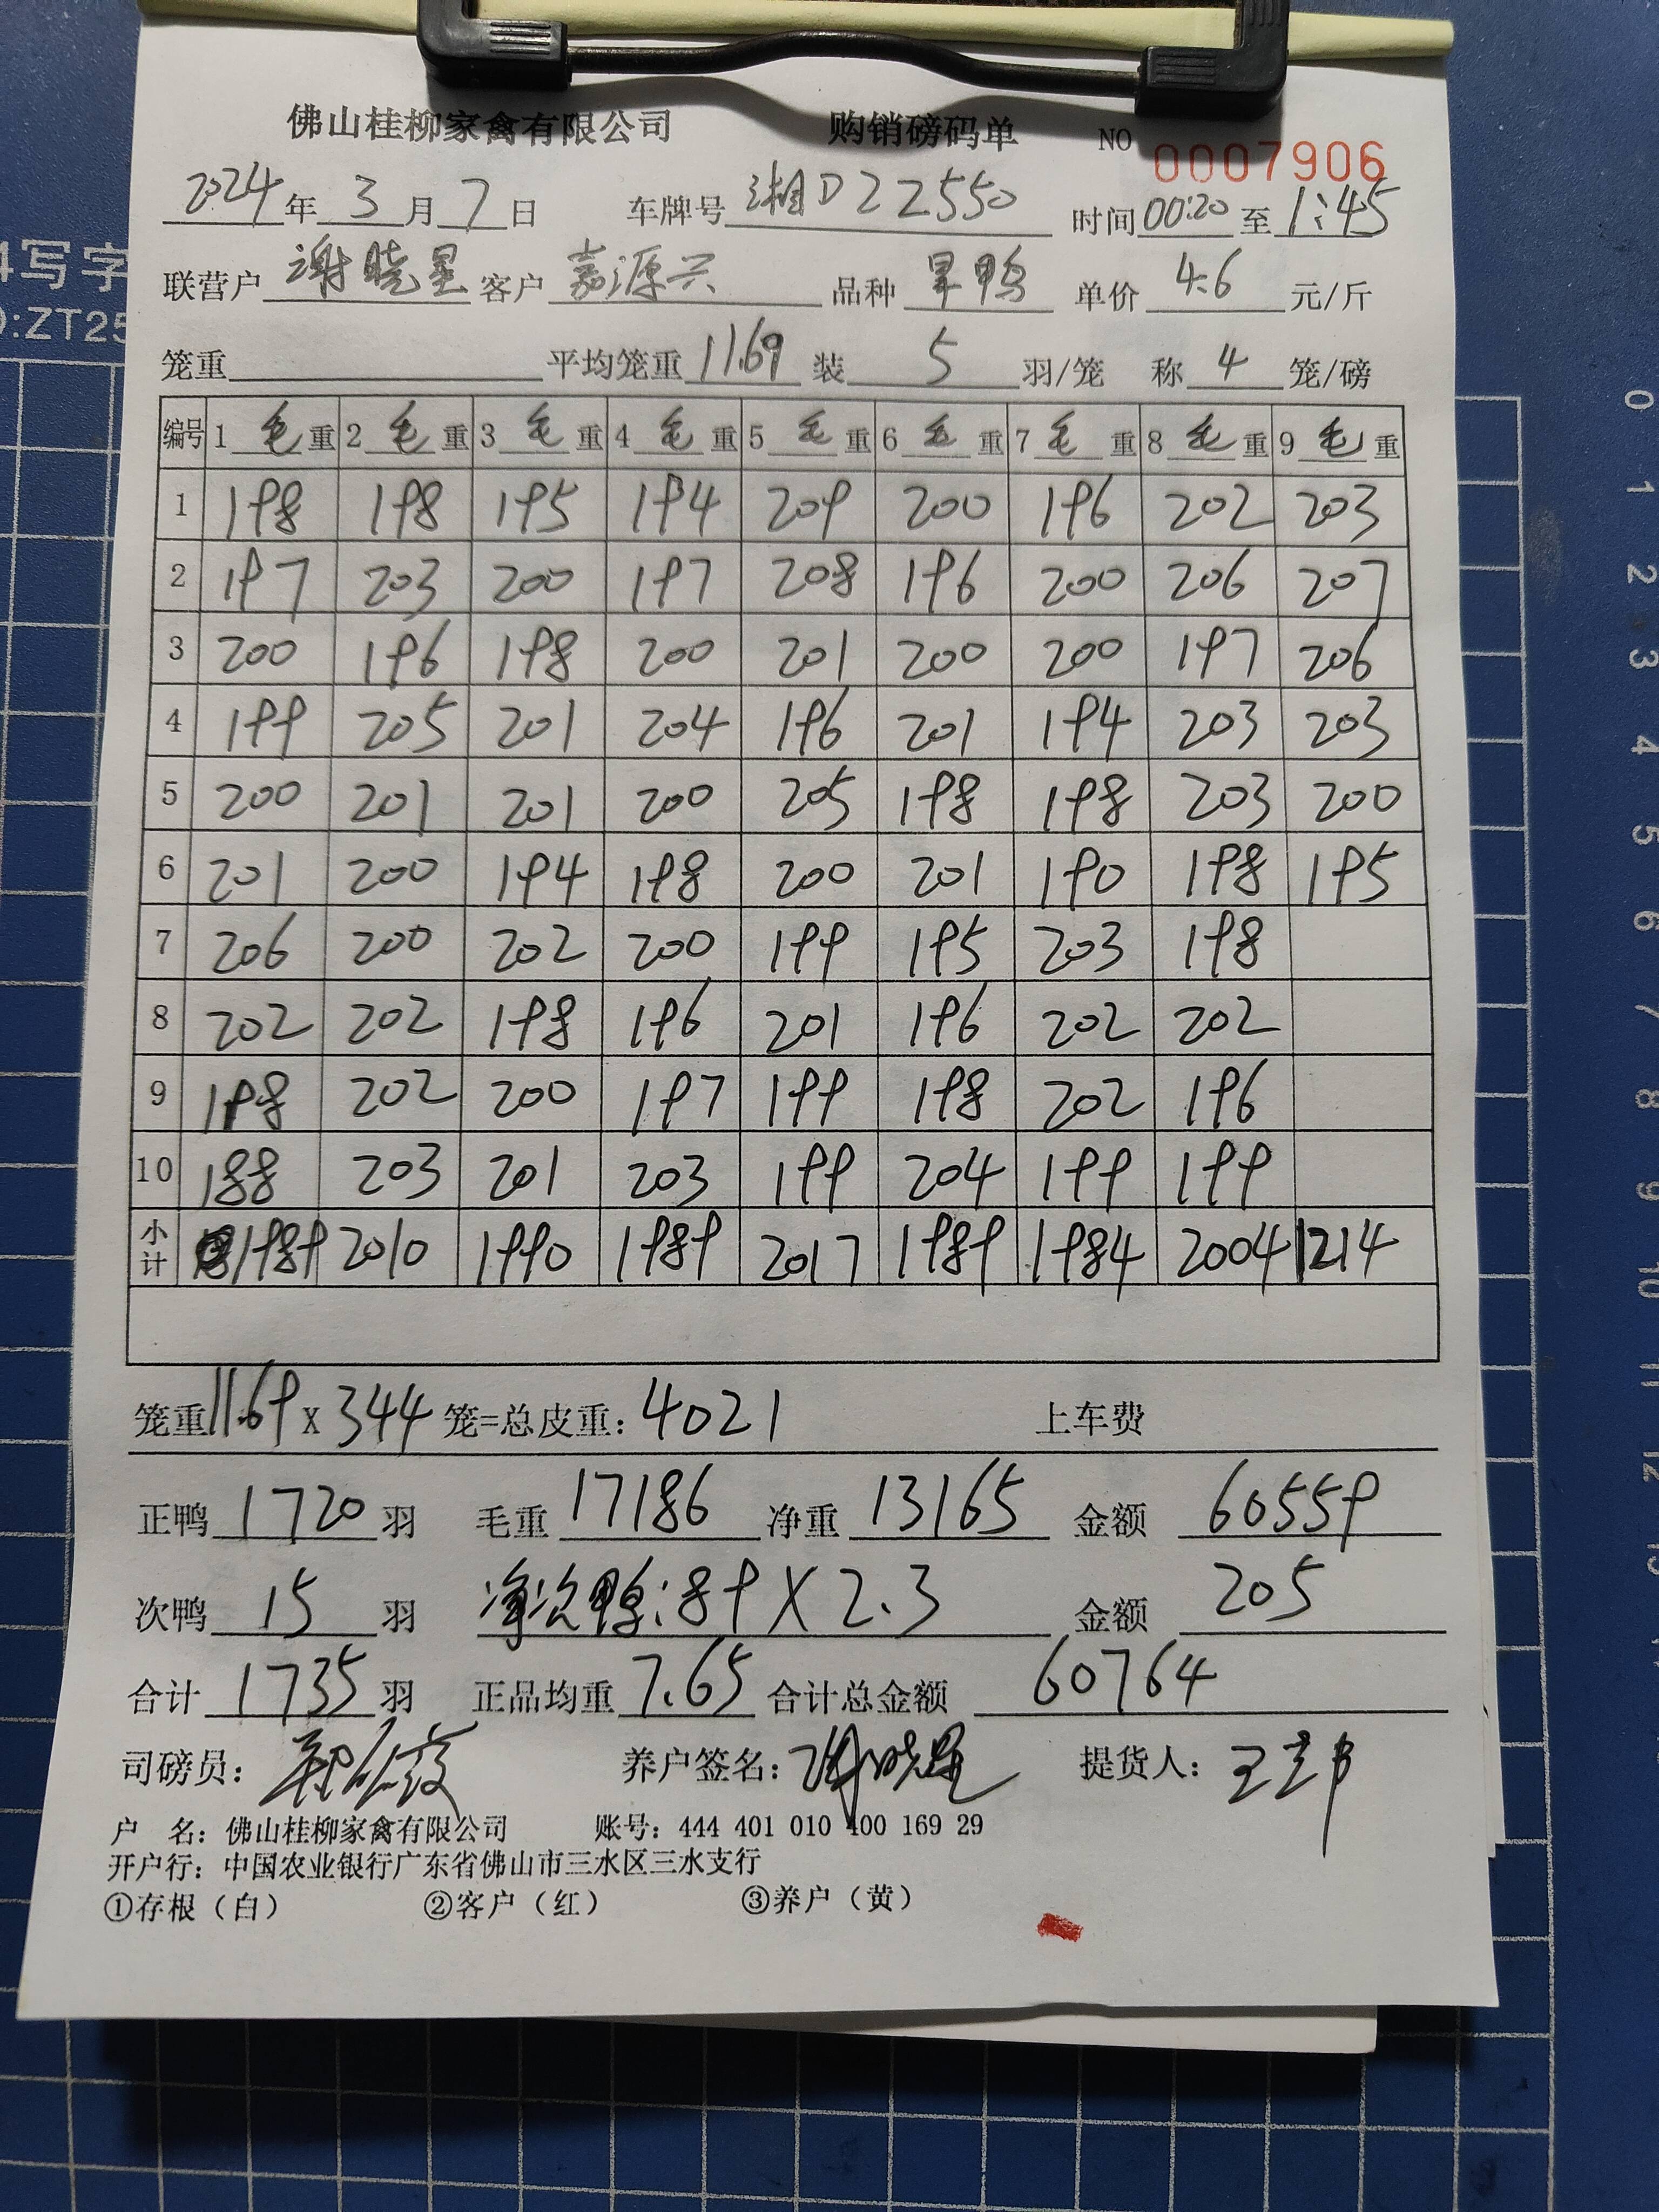 佛山桂柳家禽有限公司 购销磅码单 NO 0007906
2024年3月7日 车牌号 湘D22550 时间 00:20 至 1:45
联营户 谢晓星 客户 嘉源兴 品种 旱鸭 单价 4.6 元/斤
笼重 平均笼重 11.69 装 5 羽/笼 称 4 笼/磅
编号 1 毛重 2 毛重 3 毛重 4 毛重 5 毛重 6 毛重 7 毛重 8 毛重 9 毛重
1 198 198 195 194 209 200 196 202 203
2 197 203 200 197 208 196 200 206 207
3 200 196 198 200 201 200 200 197 206
4 199 205 201 204 196 201 194 203 203
5 200 201 201 200 205 198 198 203 200
6 201 200 194 198 200 201 190 198 195
7 206 200 202 200 199 195 203 198
8 202 202 198 196 201 196 202 202
9 198 202 200 197 199 198 202 196
10 188 203 201 203 199 204 199 199
小计 1989 2010 1990 1989 2017 1989 1984 2004 1214
笼重 11.69 X 344 笼=总皮重: 4021 上车费
正鸭 1720 羽 毛重 17186 净重 13165 金额 60559
次鸭 15 羽 净次鸭:89 X 2.3 金额 205
合计 1735 羽 正品均重 7.65 合计总金额 60764
司磅员: 养户签名: 谢晓星 提货人:
户 名: 佛山桂柳家禽有限公司 账号: 444 401 010 400 169 29
开户行: 中国农业银行广东省佛山市三水区三水支行
①存根（白） ②客户（红） ③养户（黄）
4写字
0:ZT25
0
1
2
3
4
5
6
7
8
9
10
11
12
13